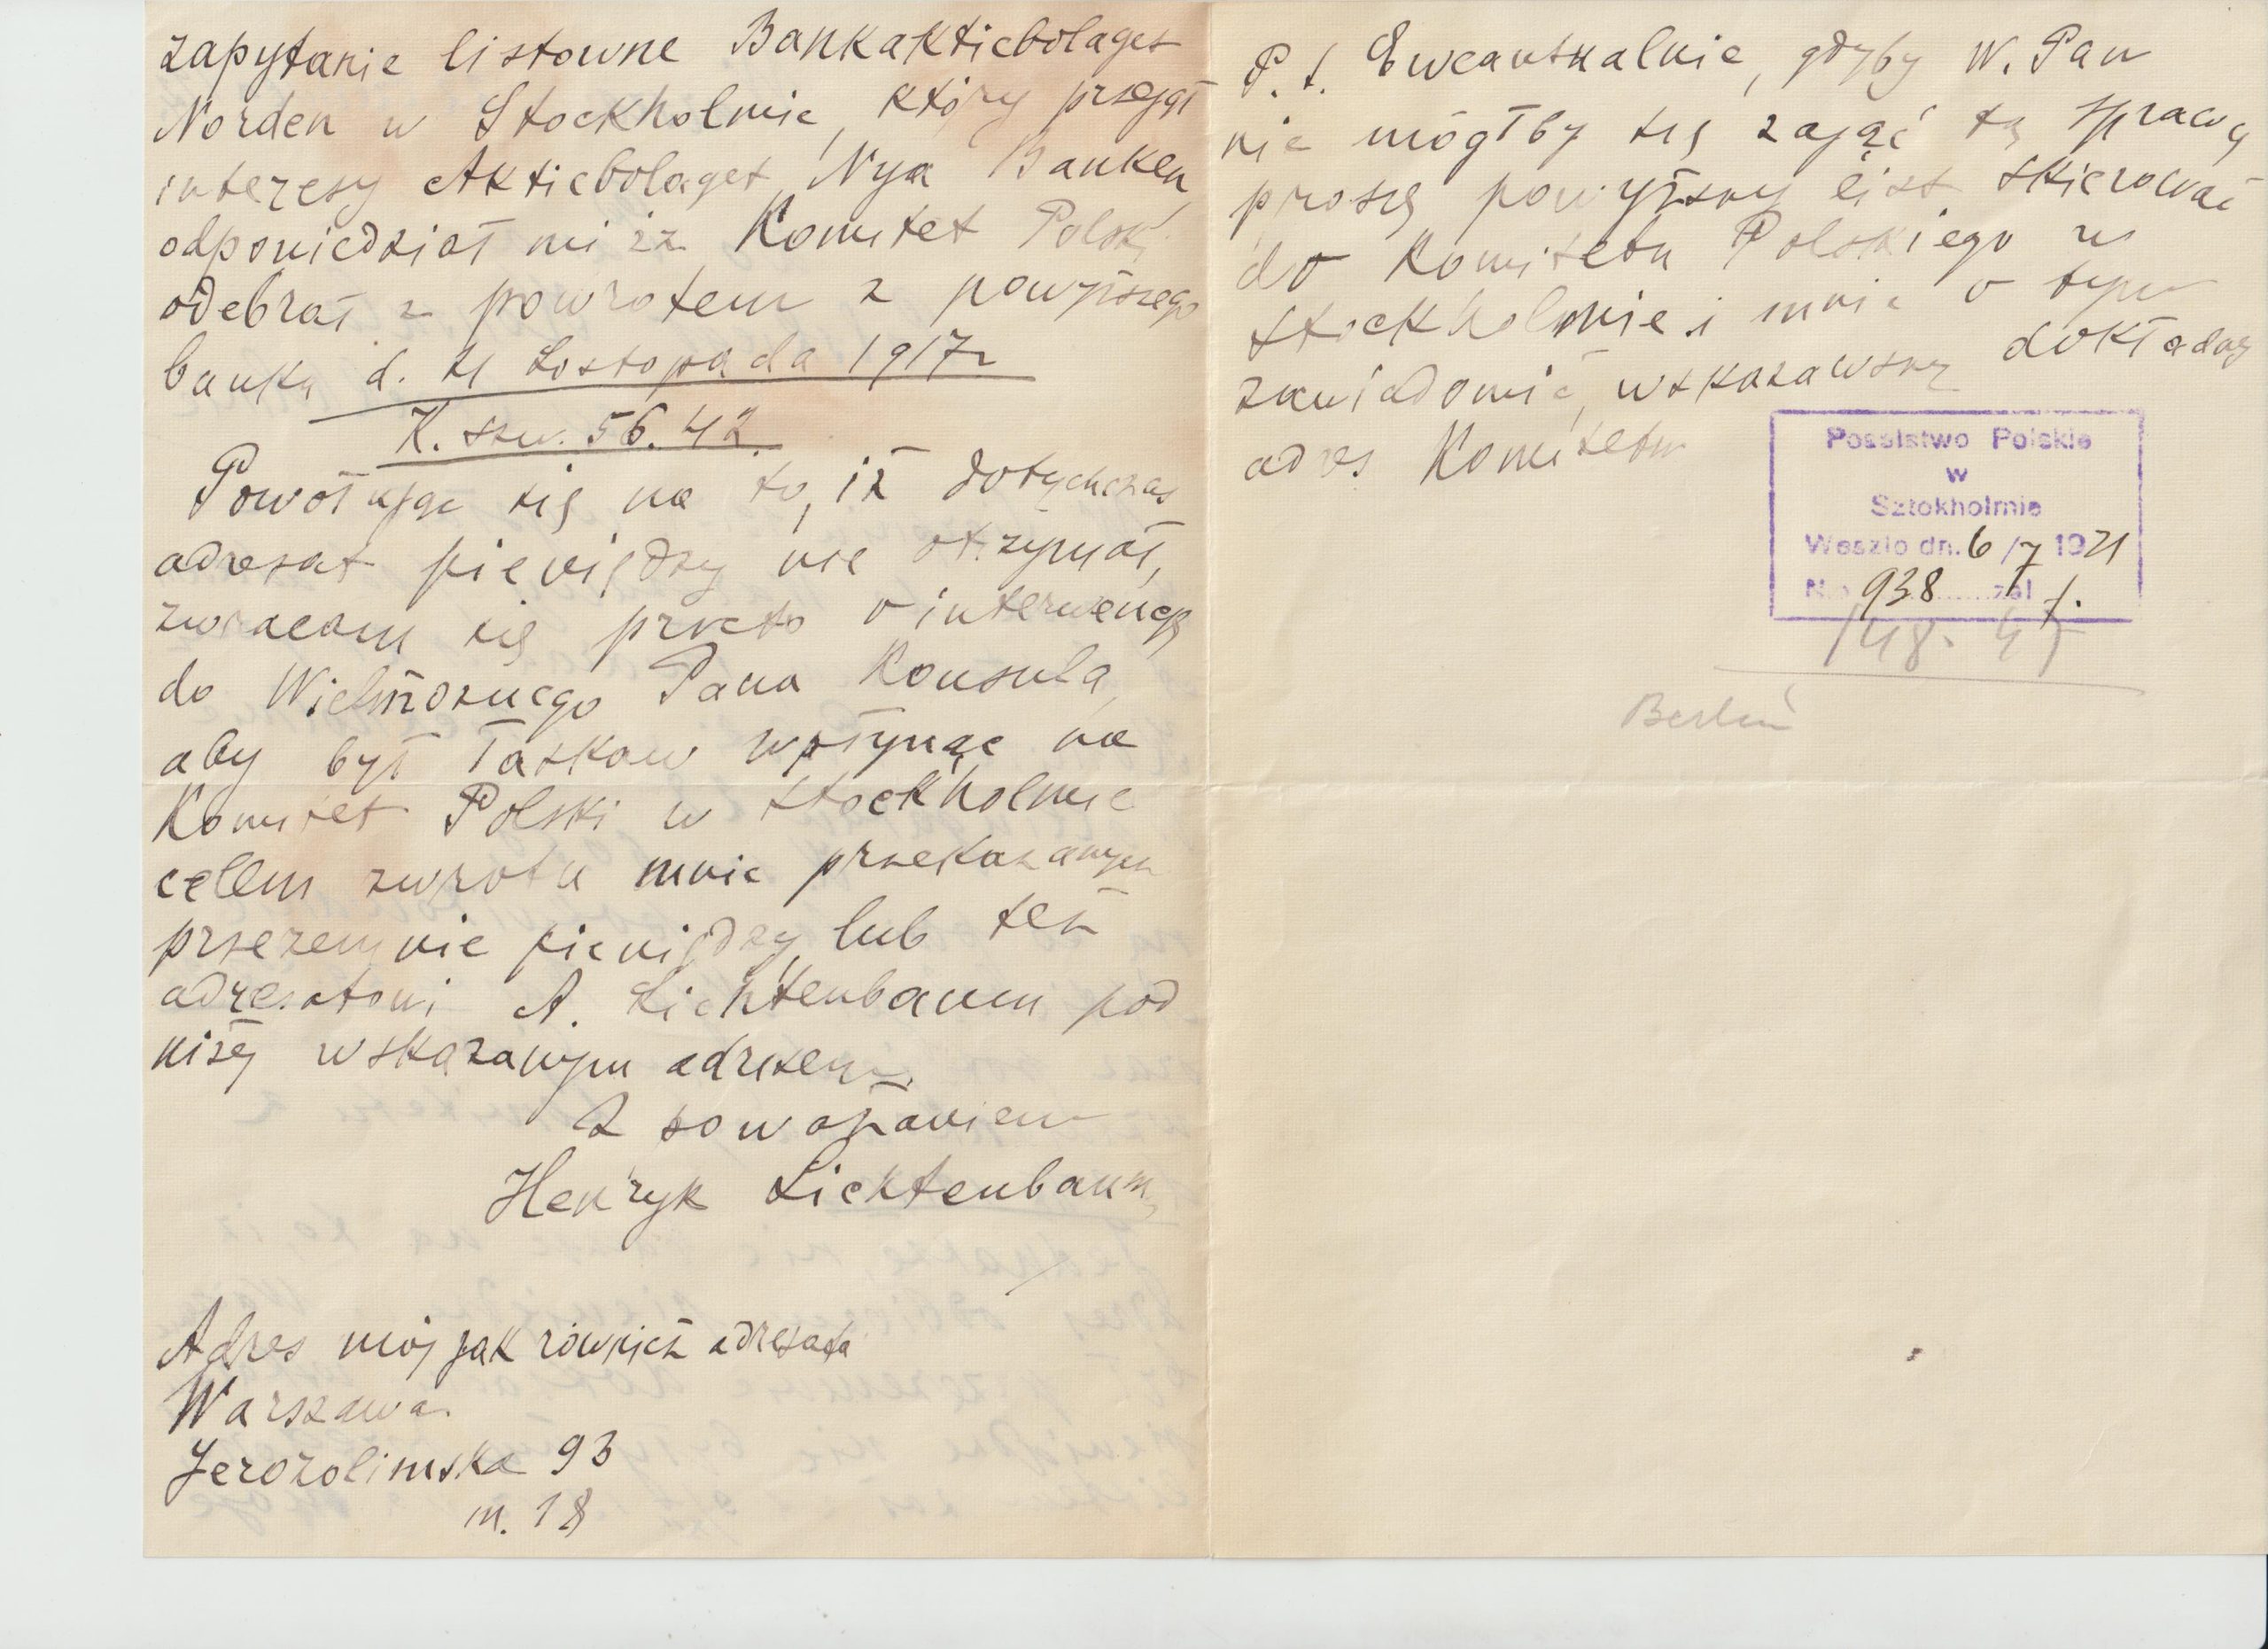 zapytanie listowne Bankaktiebolaget
Norden w Stockholmie, który przejął
interesy Aktiebolaget Nya Banken
odpowiedział mi iż Komitet Polski
odebrał z powrotem z powyższego
banku d. 21 Listopada 1917r
K. szw. 56.42
Powołując się na to, iż dotychczas
adresat pieniędzy nie otrzymał,
zwracam się przeto o interwencję
do Wielmożnego Pana Konsula,
aby był łaskaw wpłynąć na
Komitet Polski w Stockholmie
celem zwrotu mnie przekazanych
przezemnie pieniędzy, lub też
adresatowi A. Lichtenbaum pod
niżej wskazanym adresem.
Z poważaniem
Henryk Lichtenbaum
Adres mój jak również adresata
Warszawa.
Jerozolimska 93
m. 18
P. S. Ewentualnie, gdyby W. Pan
nie mógłby się zająć tą sprawą
proszę powyższy list skierować
do Komitetu Polskiego w
Stockholmie i mnie o tym
zawiadomić, wskazawszy dokładny
adres Komitetu
Poselstwo Polskie
w
Sztokholmie
Weszło dn. 6/7 1921
N. 938 zał 1.
Berlin